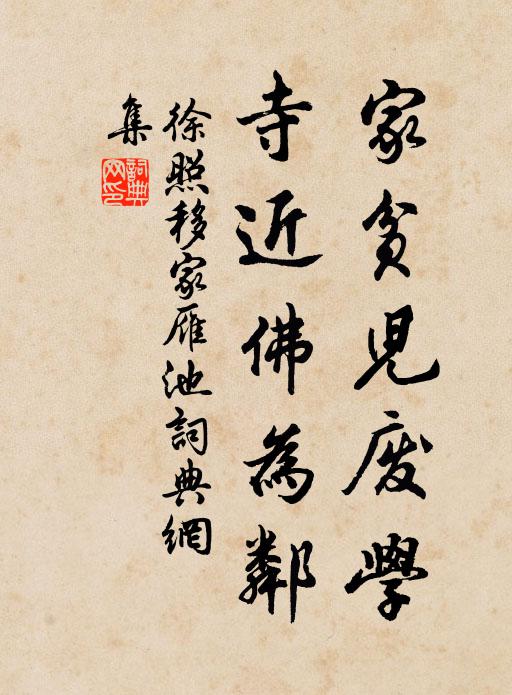 家貧兒廢學
寺近佛為鄰
徐照移家雁池詞典網
集
詞典
网印